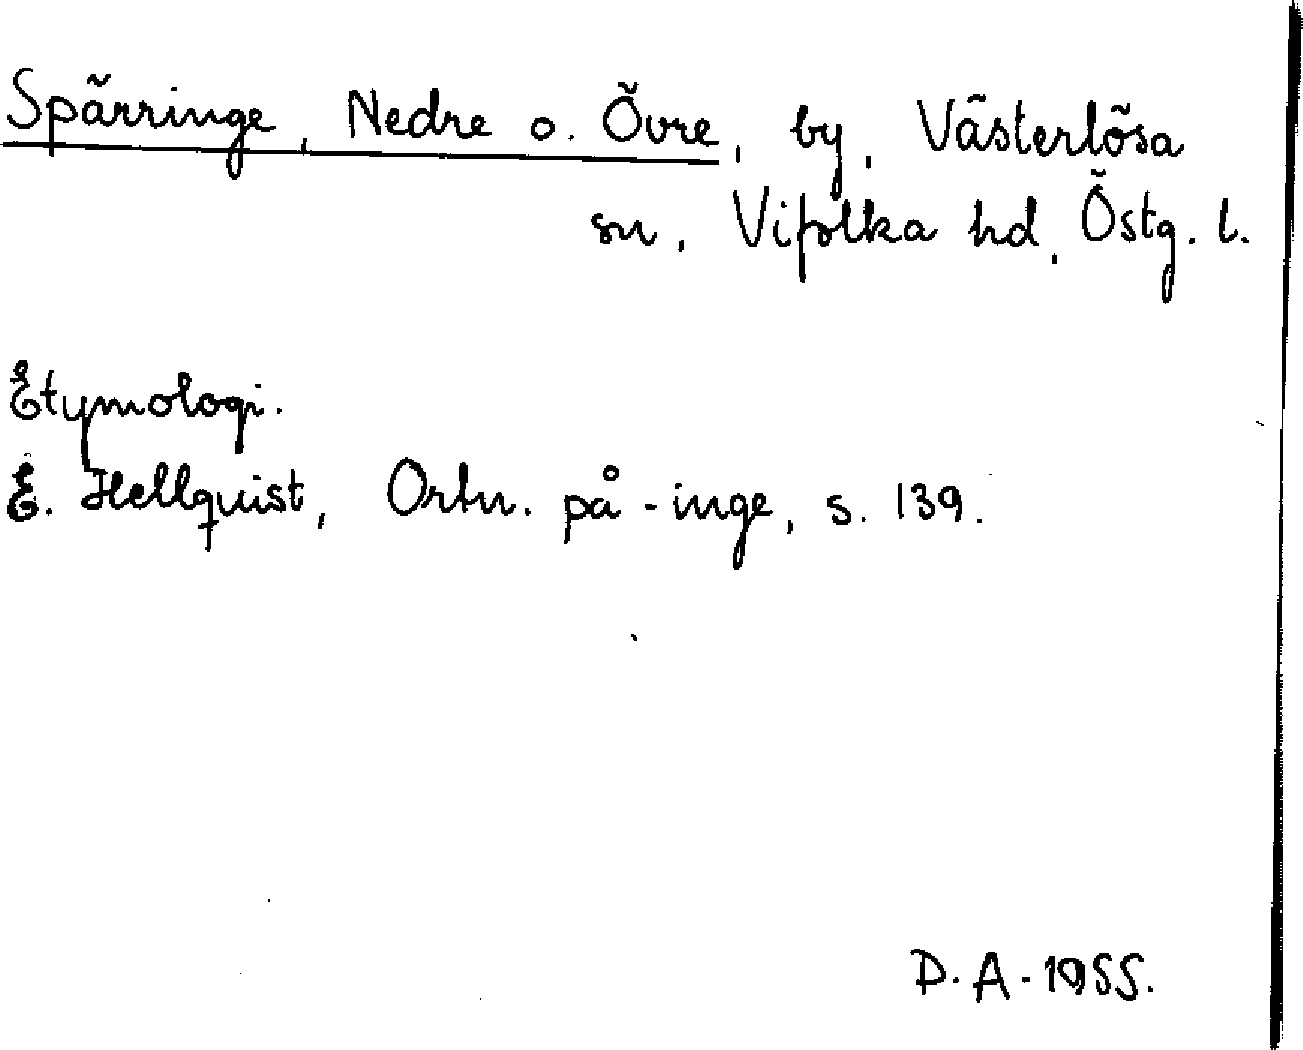 Spärringe, Nedre o. Övre, by, Västerlösa
sn, Vifolka hd, Östg. l.
Etymologi.
E. Hellquist, Ortn. på -inge, s. 139.
D. A. 1955.